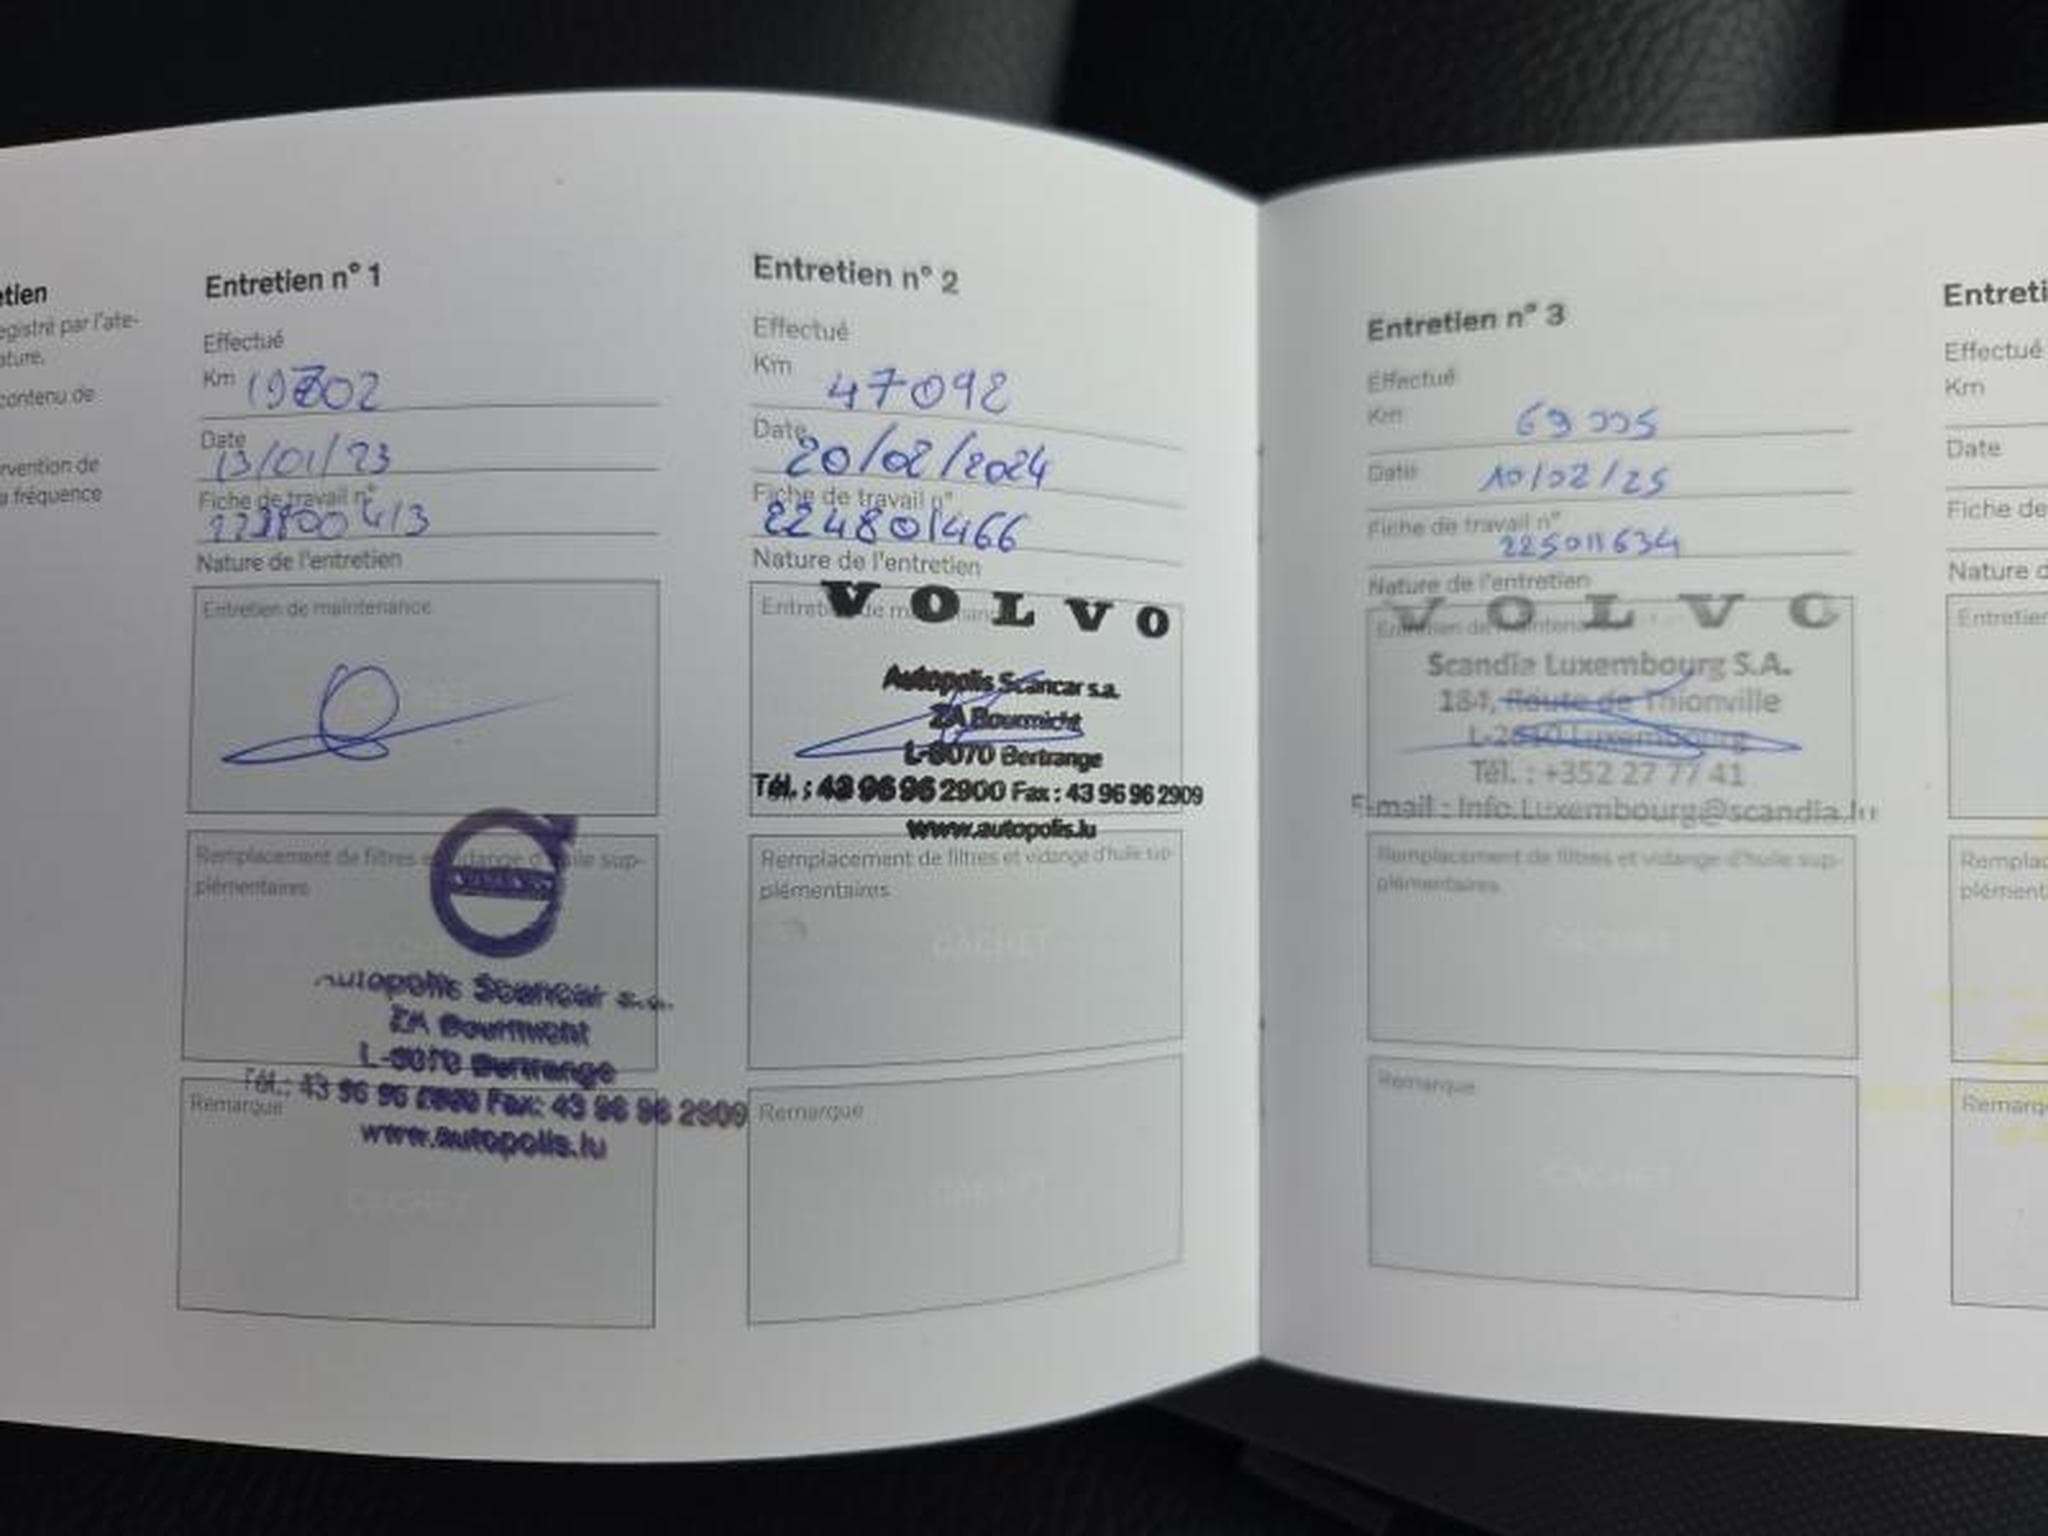 etien
egistré par l'ate-
ature.
contenu de
rvention de
a fréquence
Entretien n° 1
Effectué
Km
Date 13/01/23
Fiche de travail n°
Nature de l'entretien
Entretien de maintenance
Remplacement de filtres et vidange d'huile sup-
plémentaires
Autopolis Scancar s.a.
ZA Bourmicht
L-8070 Bertrange
Tél.: 43 96 96 2900 Fax: 43 96 96 2909
www.autopolis.lu
Remarque
CACHET
Entretien n° 2
Effectué
Km 47092
Date 20/02/2024
Fiche de travail n°
224801466
Nature de l'entretien
Entretien de maintenance
VOLVO
Autopolis Scancar s.a.
ZA Bourmicht
L-8070 Bertrange
Tél. : 43 96 96 2900 Fax : 43 96 96 2909
www.autopolis.lu
Remplacement de filtres et vidange d'huile sup-
plémentaires
CACHET
Remarque
CACHET
Entretien n° 3
Effectué
Km
Date 10/02/25
Fiche de travail n°
225011634
Nature de l'entretien
Entretien de maintenance
VOLVO
Scandia Luxembourg S.A.
184, Route de Thionville
Luxembourg
Tél. : +352 27 77 41
E-mail : Info.Luxembourg@scandia.lu
Remplacement de filtres et vidange d'huile sup-
plémentaires
CACHET
Remarque
CACHET
Entreti
Effectué
Km
Date
Fiche de
Nature d
Entretien
Remplac
plément
Remarq